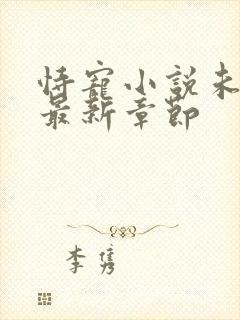 恃寵小説未
最新章節
李隽